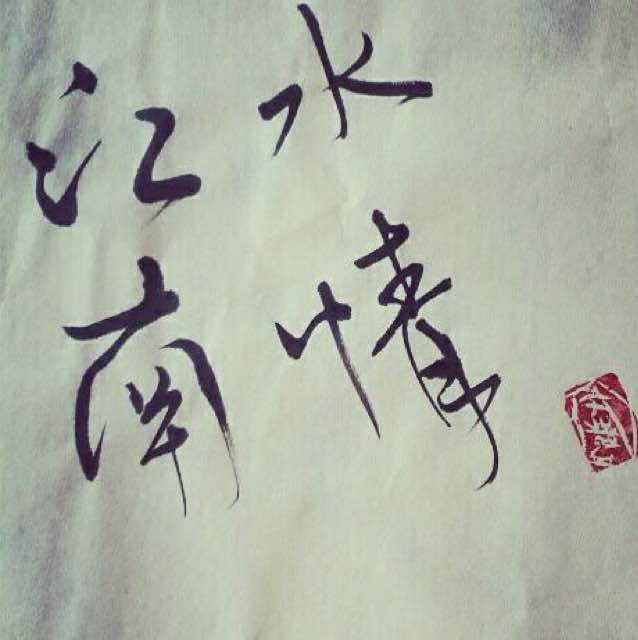 江南
水情